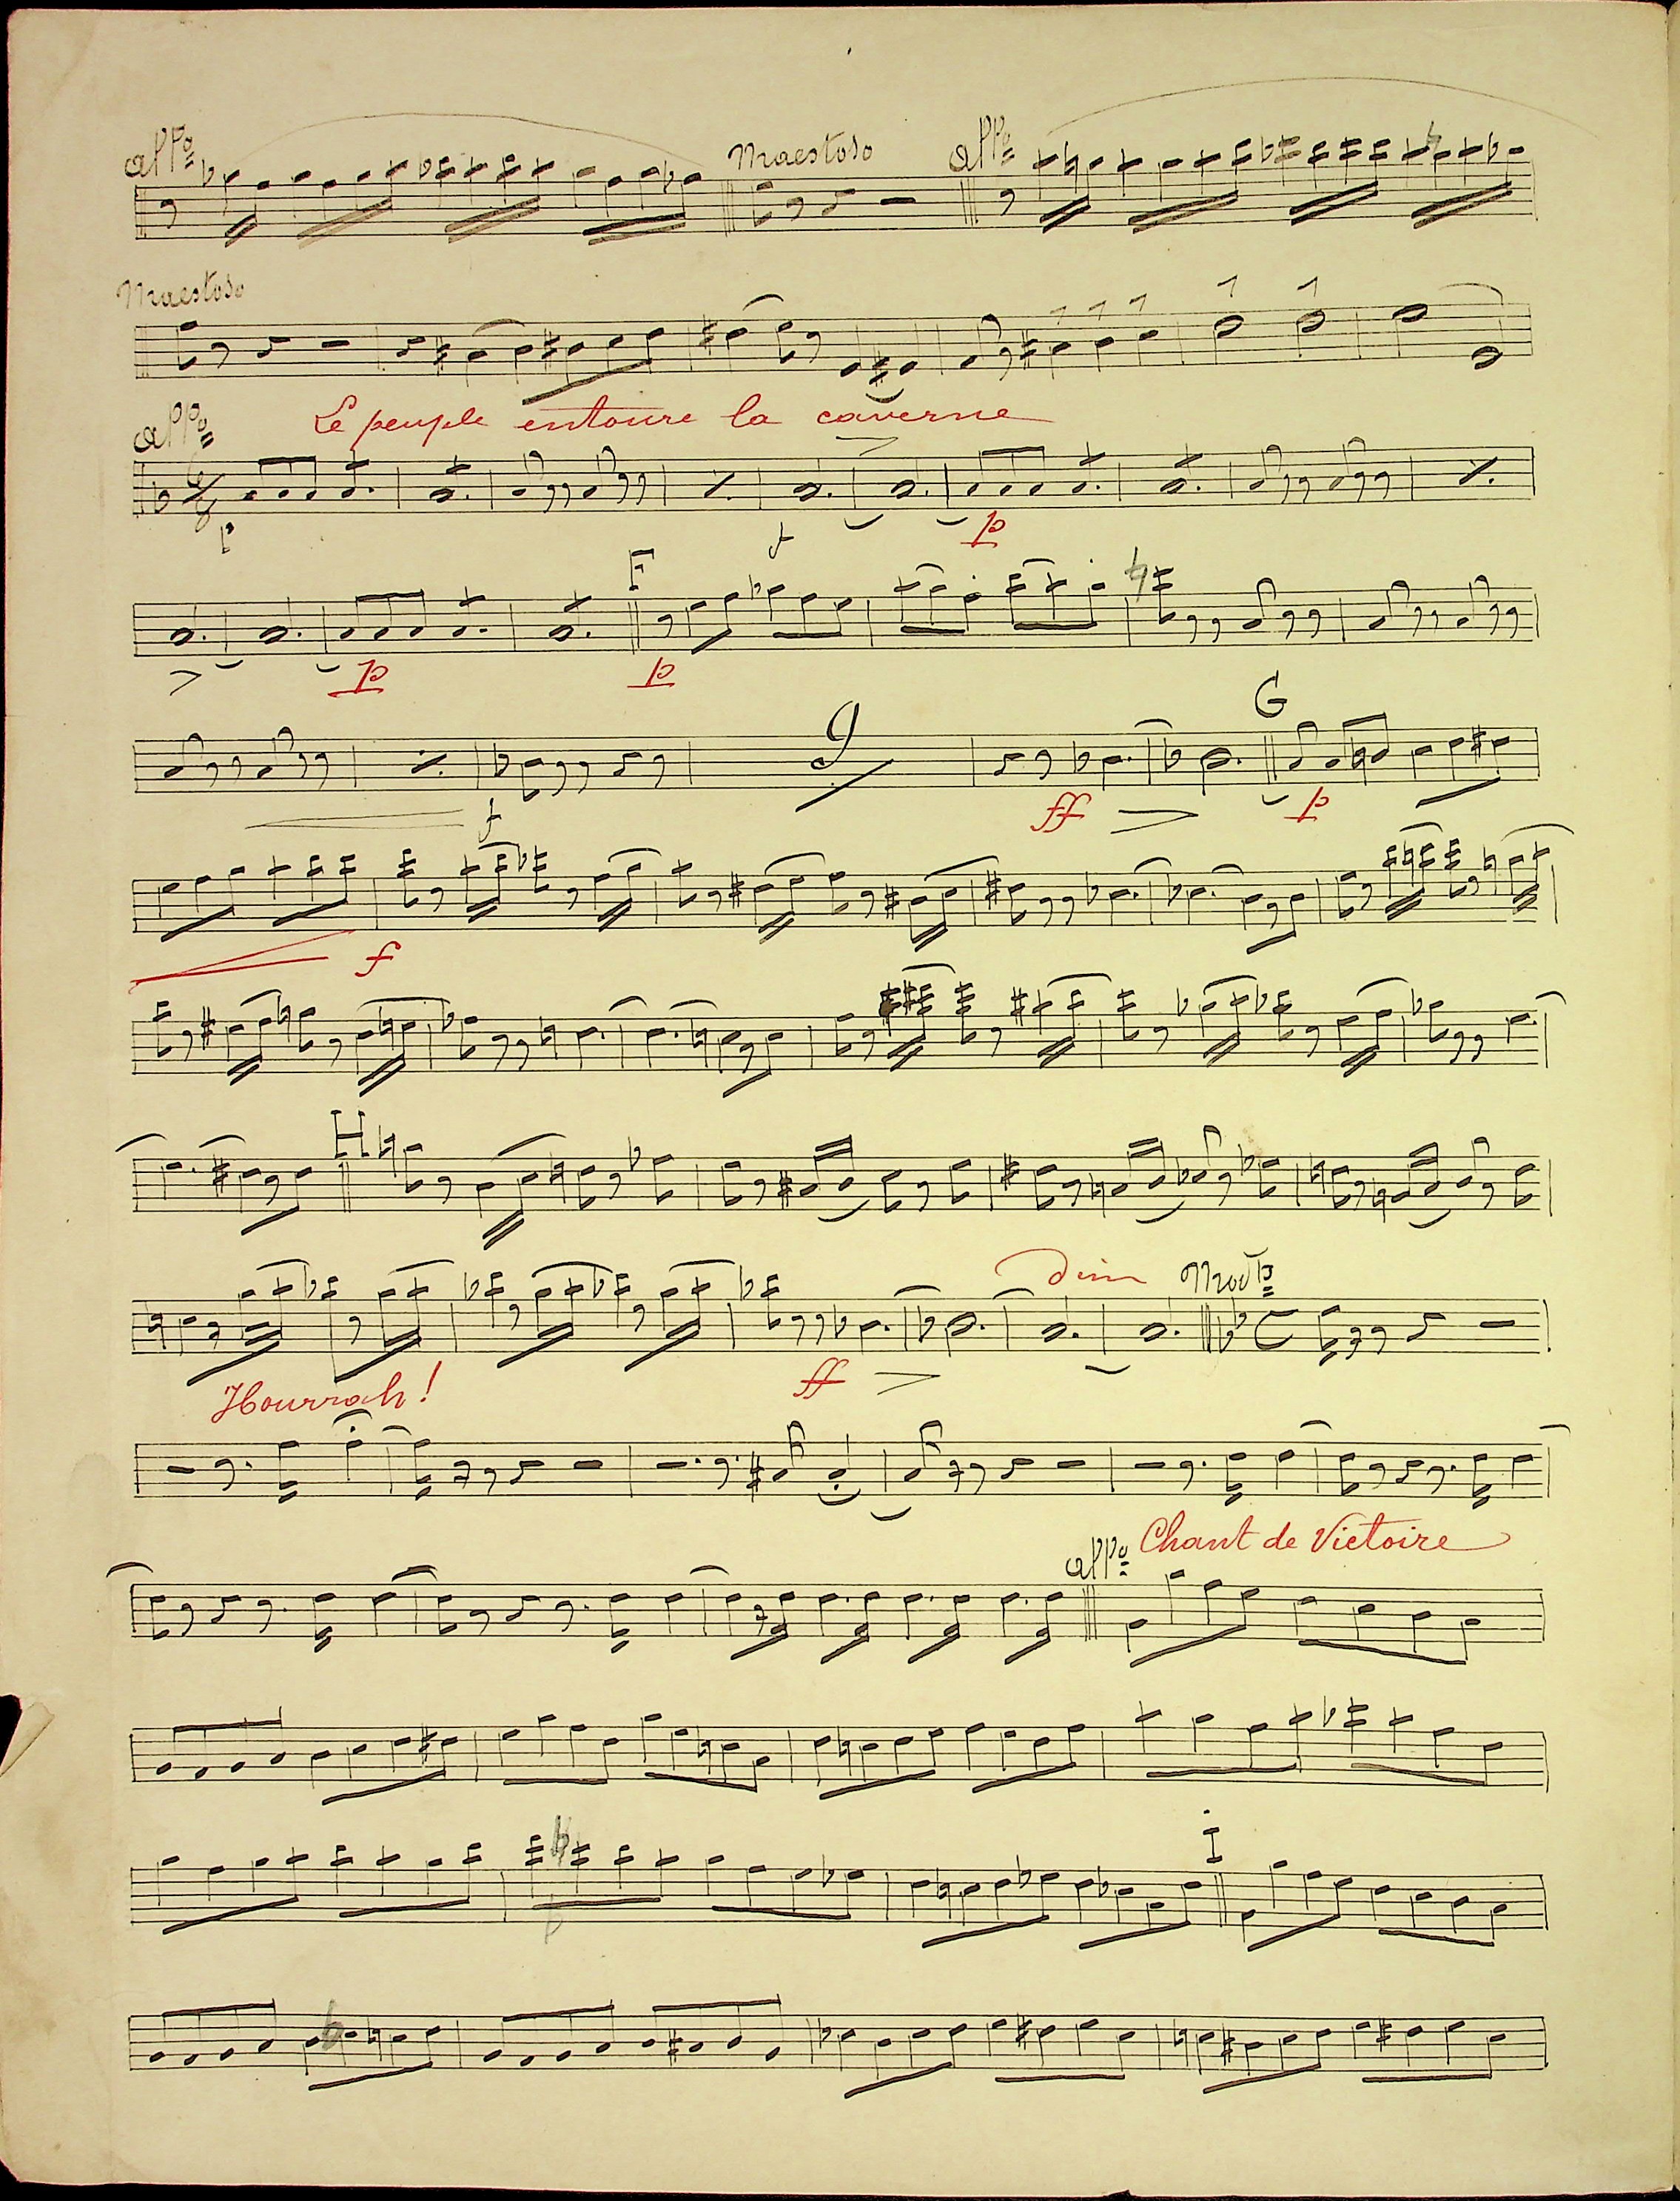 allo Maestoso allo
Maestoso
allo Le peuple entoure la caverne
6/8
p f p
F
p p
G
9
f ff p
f
H
dim Modto
C
Hourrah! ff
allo Chant de Victoire
I